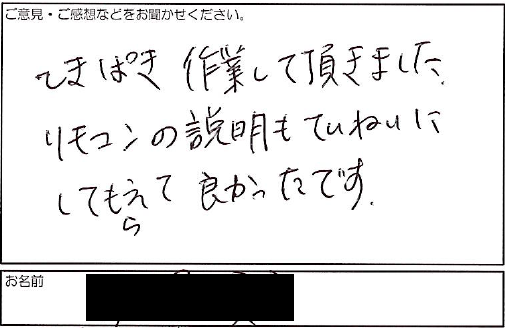 ご意見・ご感想などをお聞かせください。
てきぱき 作業して頂きました。
リモコンの説明もていねいに
してもらえて 良かったです。
お名前